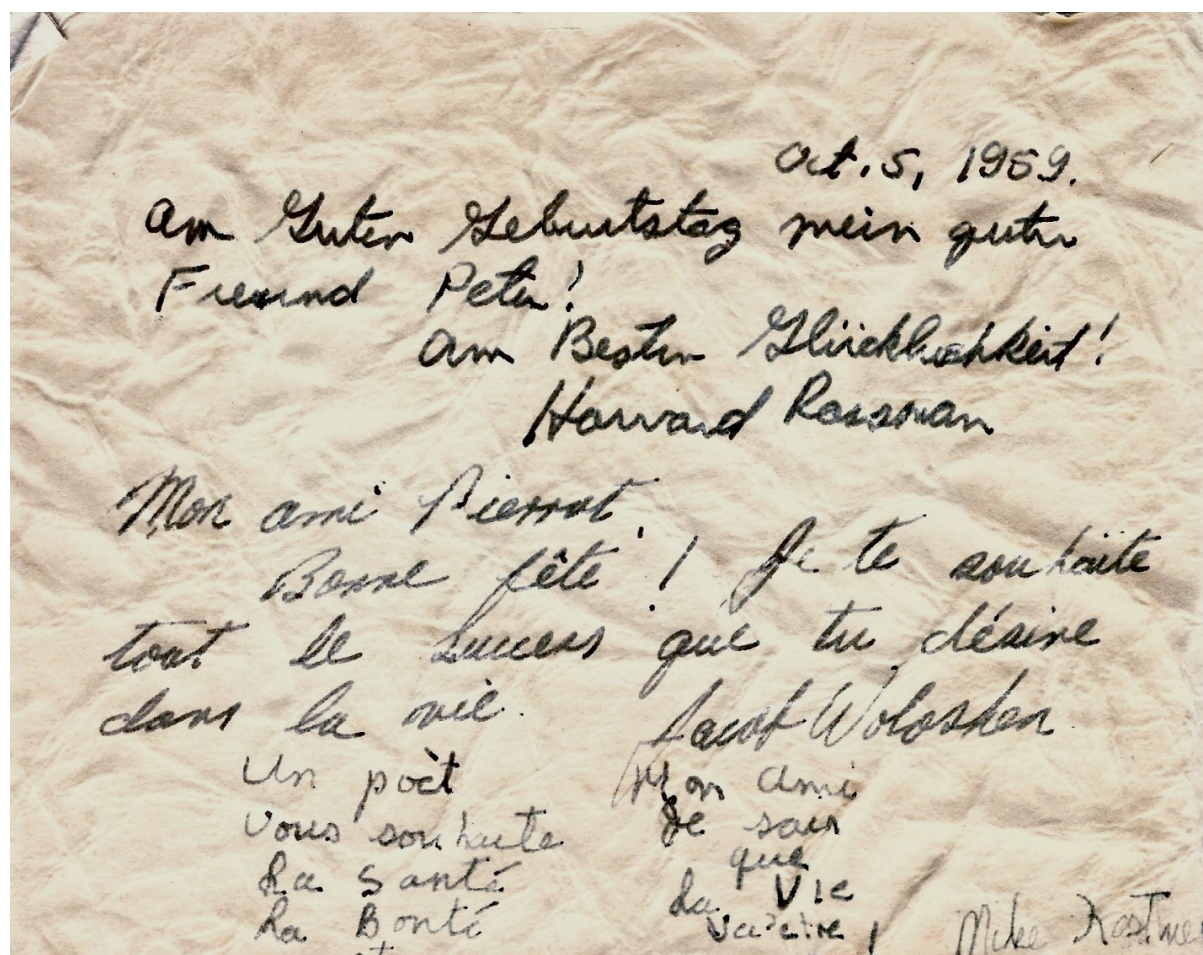 Oct. 5, 1959.
Am Guten Geburtstag mein guter
Freund Peter!
Am Besten Glücklichkeit!
Howard Rossman
Mon ami Pierrot,
Bonne fête! Je te souhaite
tout le success que tu désire
dans la vie.
Jacob Woloshen
Un poèt
vous souhaite
La Santé
La Bonté
Mon ami
Je sais
que
La Vie
Va etre!
Mike